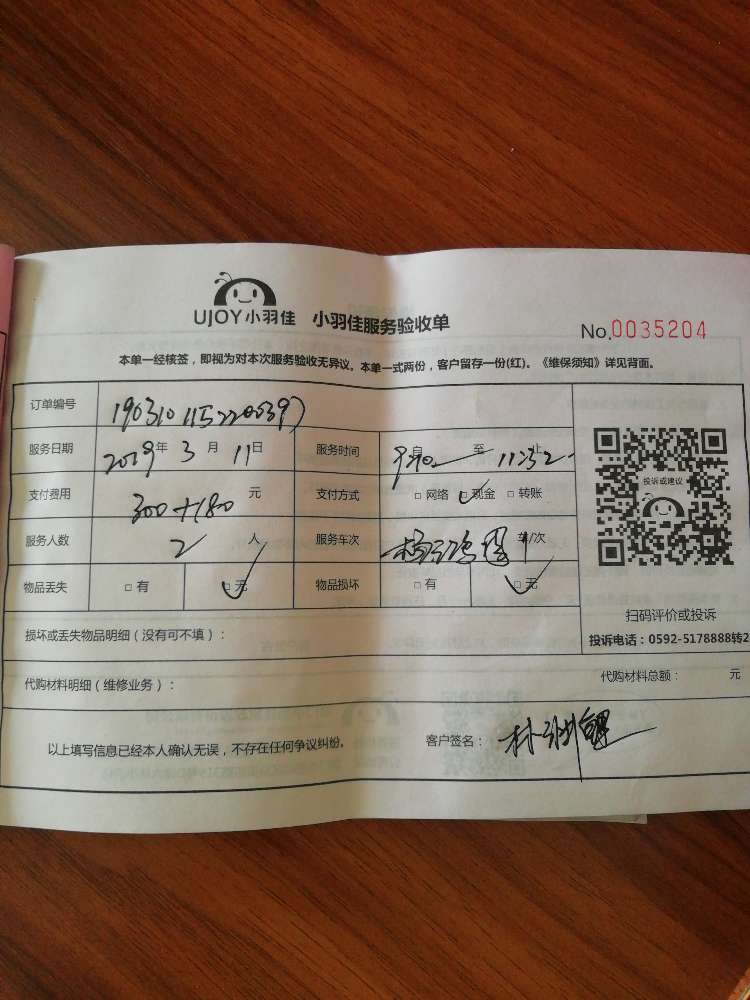 UJOY小羽佳 小羽佳服务验收单
No.0035204
本单一经核签，即视为对本次服务验收无异议。本单一式两份，客户留存一份(红)。《维保须知》详见背面。
订单编号
服务日期 2019年 3 月 11日 服务时间 自 至 止
支付费用 300+180 元 支付方式 □ 网络 ☑ 现金 □ 转账
服务人数 2 人 服务车次 车/次
物品丢失 □ 有 ☑ 无 物品损坏 □ 有 ☑ 无
投诉或建议
扫码评价或投诉
投诉电话：0592-5178888转2
损坏或丢失物品明细（没有可不填）：
代购材料明细（维修业务）： 代购材料总额： 元
以上填写信息已经本人确认无误，不存在任何争议纠纷。 客户签名：